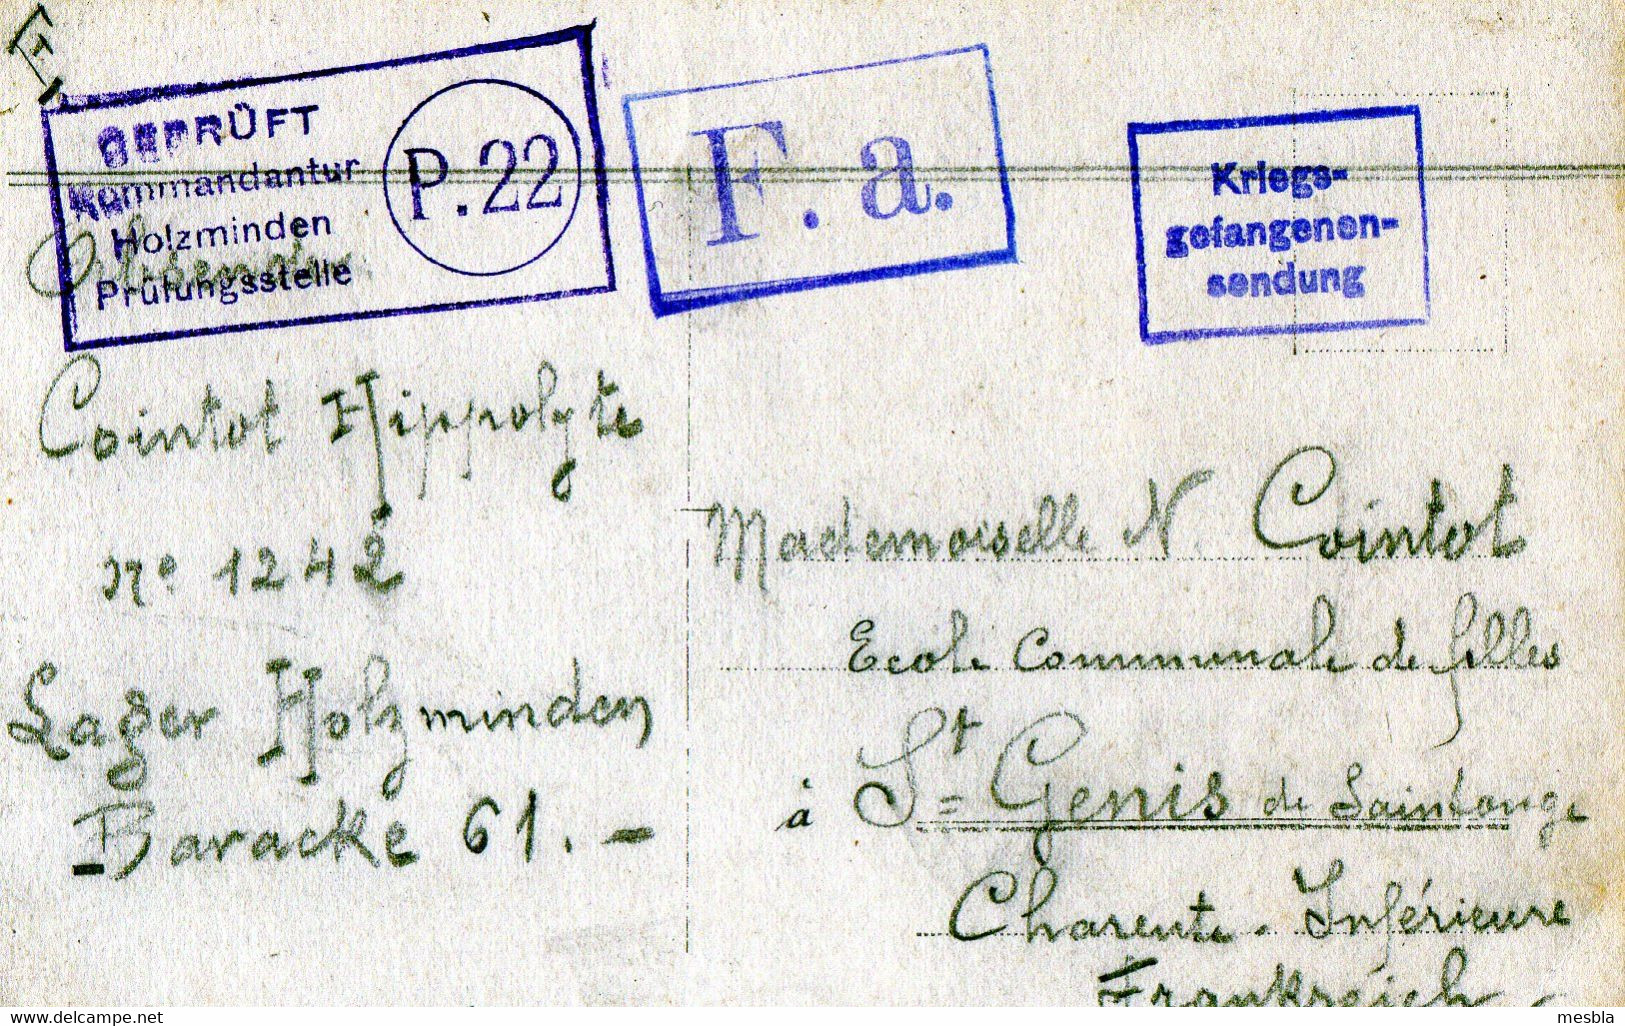 GEPRÜFT
Kommandantur
Holzminden
Prüfungsstelle
P.22
F. a.
Kriegs-
gefangenen-
sendung
Cointot Hippolyte
No 1242
Lager Holzminden
Baracke 61. -
Mademoiselle N. Cointot
Ecole Communale de filles
à St = Genis de Saintonge
Charente - Inférieure
Frankreich -
www.delcampe.net
mesbla